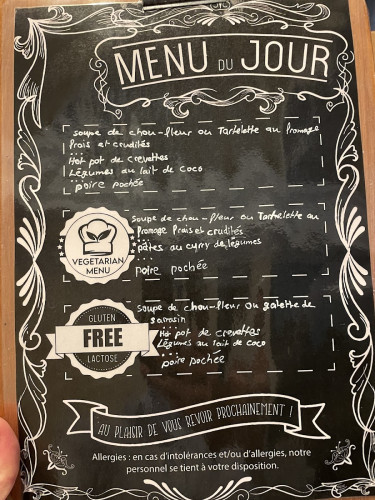 MENU DU JOUR
soupe de chou-fleur ou Tartelette au fromage
frais et crudités
...
Hot pot de crevettes
Légumes au lait de coco
...
poire pochée
VEGETARIAN
MENU
soupe de chou-fleur ou Tartelette au
fromage frais et crudités
...
pâtes au curry de légumes
...
poire pochée
GLUTEN
FREE
LACTOSE
soupe de chou-fleur ou galette de
sarrasin
...
Hot pot de crevettes
Légumes au lait de coco
...
poire pochée
AU PLAISIR DE VOUS REVOIR PROCHAINEMENT !
Allergies : en cas d'intolérances et/ou d'allergies, notre
personnel se tient à votre disposition.